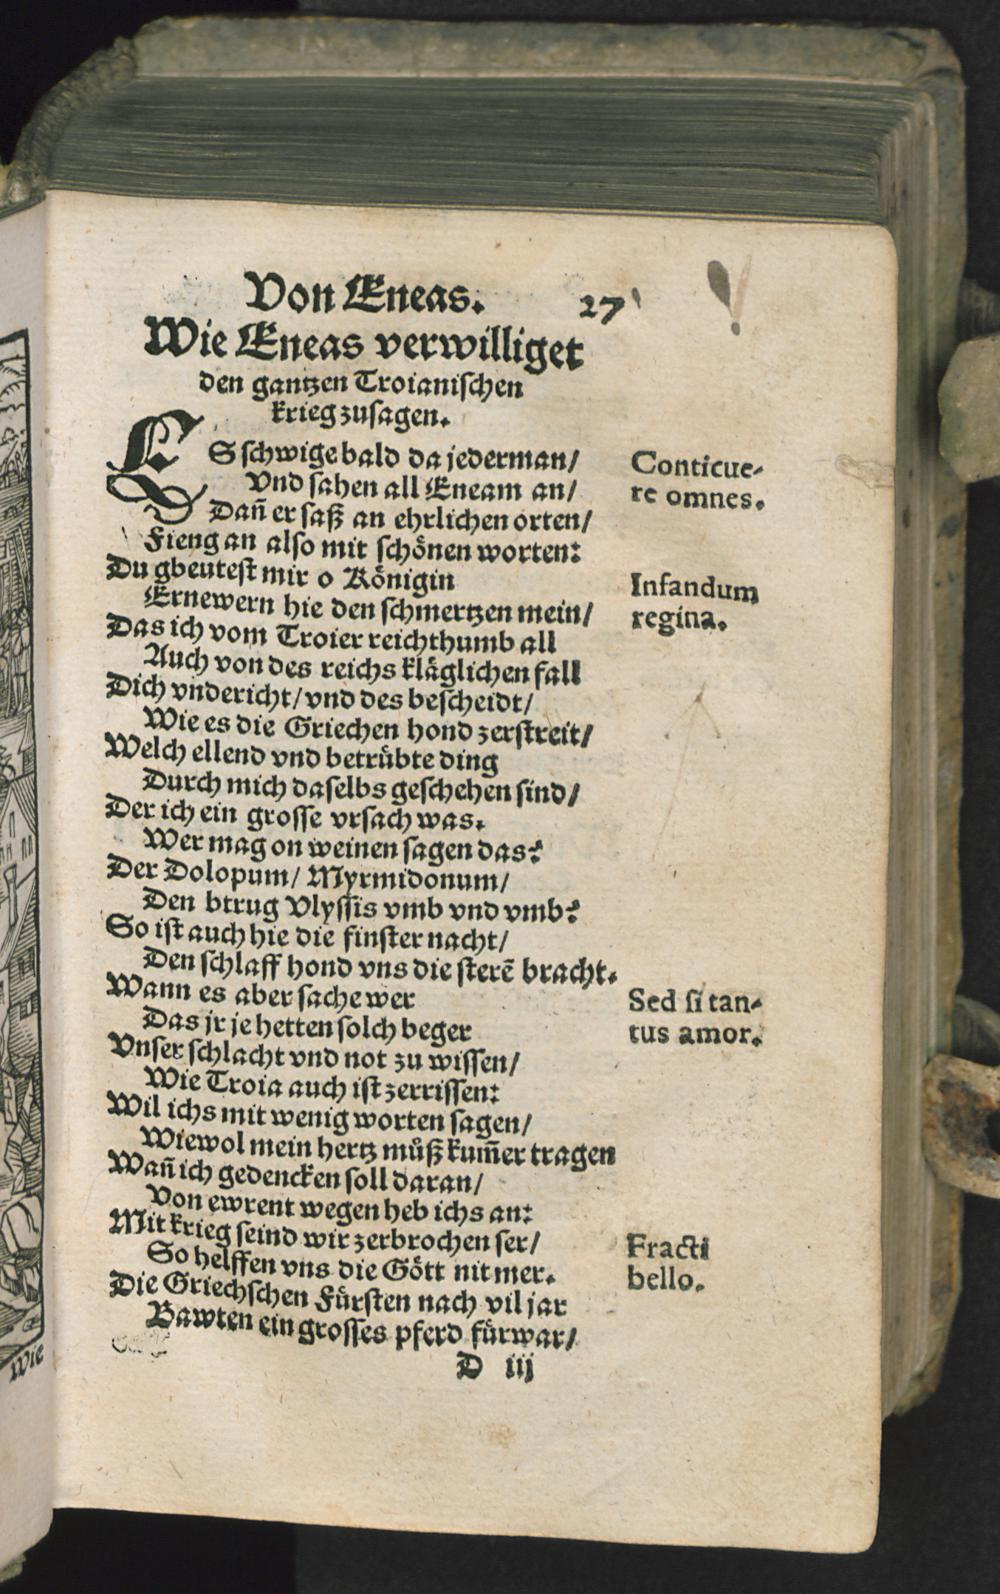 Von Eneas. 27
Wie Eneas verwilliget
den gantzen Troianischen
krieg zusagen.
ES schwige bald da jederman/
Vnd sahen all Eneam an/
Dañ er saß an ehrlichen orten/
Fieng an also mit schönen worten:
Du gbeutest mir o Königin
Ernewern hie den schmertzen mein/
Das ich vom Troier reichthumb all
Auch von des reichs kläglichen fall
Dich vndericht/ vnd des bescheidt/
Wie es die Griechen hond zerstreit/
Welch ellend vnd betrübte ding
Durch mich daselbs geschehen sind/
Der ich ein grosse vrsach was.
Wer mag on weinen sagen das?
Der Dolopum/ Myrmidonum/
Den btrug Vlyssis vmb vnd vmb?
So ist auch hie die finster nacht/
Den schlaff hond vns die sterẽ bracht.
Wann es aber sache wer
Das jr je hetten solch beger
Vnser schlacht vnd not zu wissen/
Wie Troia auch ist zerrissen:
Wil ichs mit wenig worten sagen/
Wiewol mein hertz můß kum̃er tragen
Wañ ich gedencken soll daran/
Von ewrent wegen heb ichs an:
Mit krieg seind wir zerbrochen ser/
So helffen vns die Gött nit mer.
Die Griechschen Fürsten nach vil jar
Bawten ein grosses pferd fürwar/
D iij
Conticue-
re omnes.
Infandum
regina.
Sed si tan-
tus amor.
Fracti
bello.
Wie